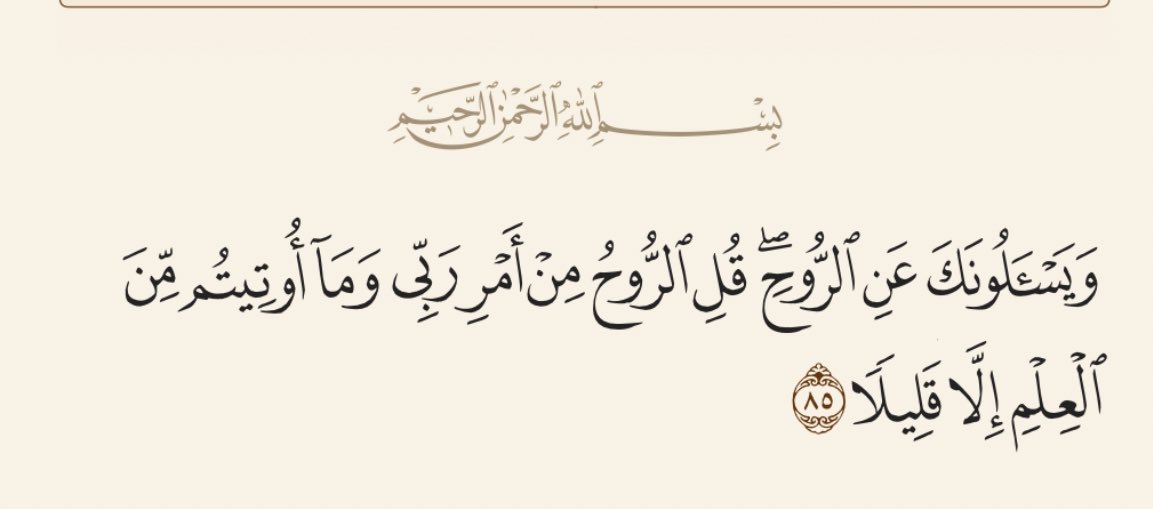 بِسْمِ ٱللَّهِ ٱلرَّحْمَٰنِ ٱلرَّحِيمِ
وَيَسْـَٔلُونَكَ عَنِ ٱلرُّوحِۖ قُلِ ٱلرُّوحُ مِنْ أَمْرِ رَبِّى وَمَآ أُوتِيتُم مِّنَ
ٱلْعِلْمِ إِلَّا قَلِيلًا ٨٥